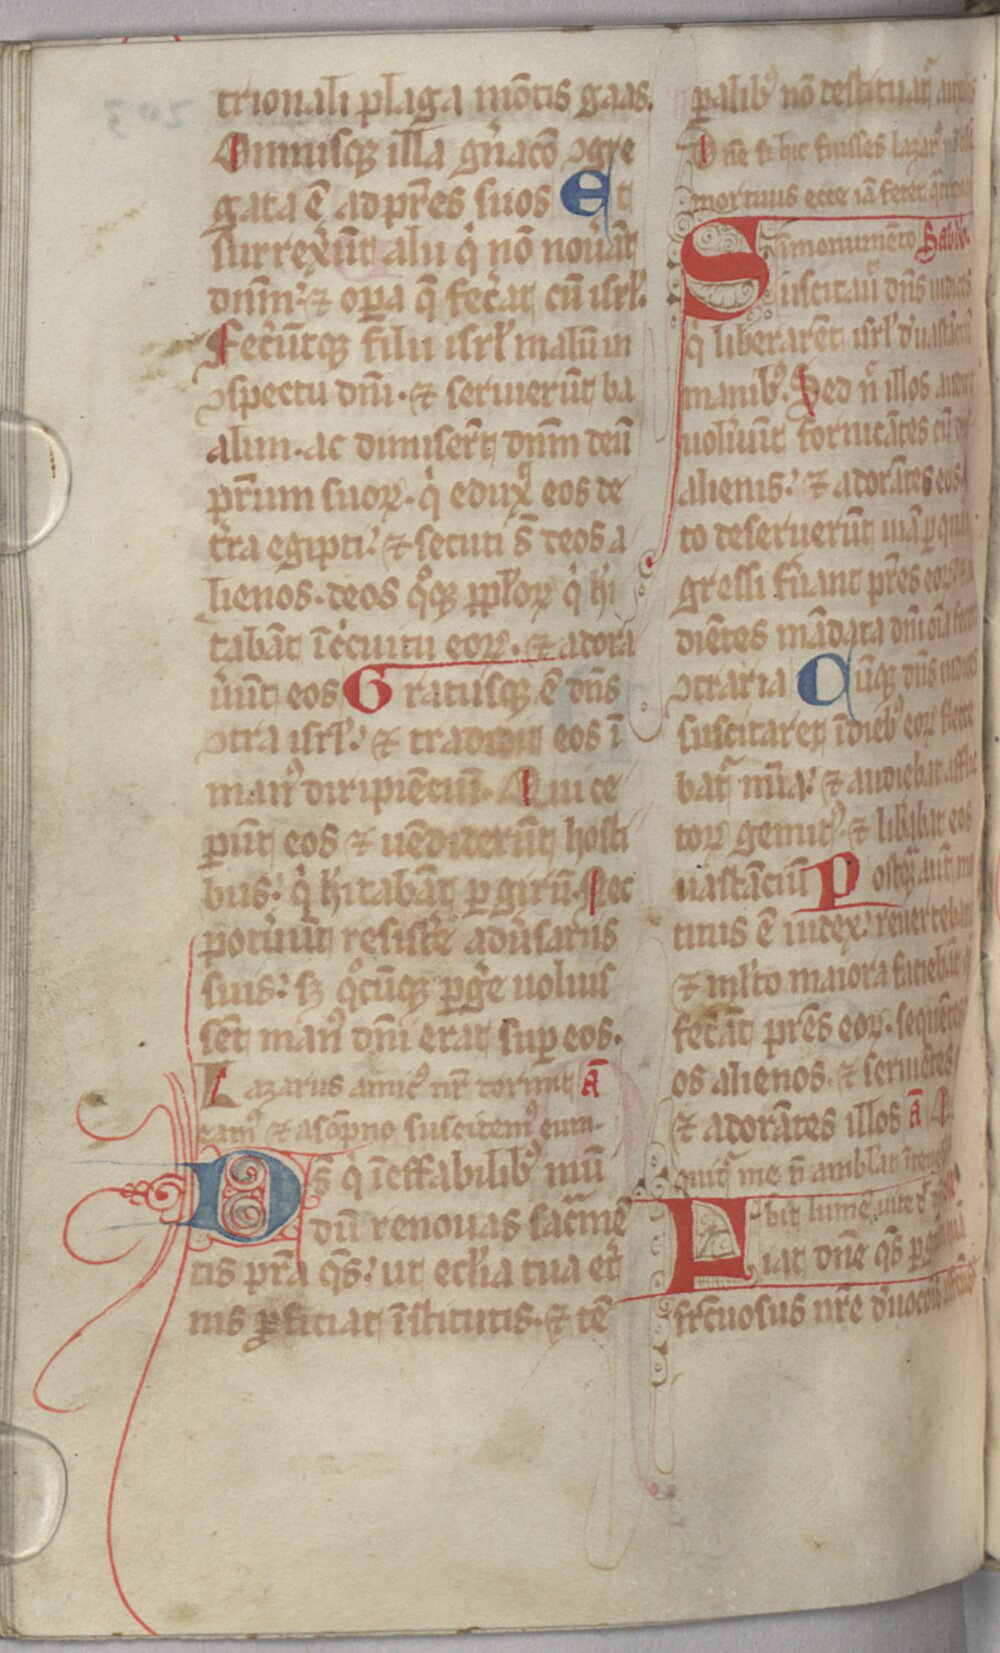 trionali plaga mōtis gaas.
Omnisq; illa gn̄aco ↄgre
gata ē ad pr̄es suos Et
surrexer̄ūt alii q̇ nō nouāt
dnm̄: ⁊ opa q̄ fec̄at cū isrl̄.
Fecer̄ūtq; filii isrl̄ malū in
ↄspectu dn̄i. ⁊ seruierūt ba
alim. ac dimiser̄t dnm̄ deū
pr̄um suoꝝ. q̇ edux̄ eos de
t̄ra egipti: ⁊ secuti s̄ deos a
lienos. deos qͦq; pp̄loꝝ q̇ hi
tabāt ī c̍cuitu eoꝝ. ⁊ adora
ūūt eos Gratusq; ē dn̄s
ↄtra isrl̄: ⁊ tradidit eos ī
manꝰ diripiētiū. Qui ce
perūt eos ⁊ uēdiderūt hosti
bus: q̇ hitabāt ꝑ girū. Nec
potūūt resist̄e adūsariis
suis: sꝫ qͦcūq; perḡe uoluis
sēt manꝰ dn̄i erat suꝑ eos.
Lazarus amicꝰ nr̄ dormit ā
eamꝰ ⁊ a sōpno suscitemꝰ eum.
Ds̄ q̇ īeffabilibꝰ mū
dū renouas sacr̄mē
tis pr̄a q̄s: ut ecl̄ia tua et̄
nis ꝓficiat īstitutis. ⁊ tē
ꝑalibꝰ nō destituat̄
Dn̄e si hic fuisses lazarꝰ
mortuus ecce iā fetet
ī monumēto Sabb̄o
Suscitauit̄ dn̄s iudices
q̇ liberarēt isrl̄ d̄ uastāciū
manibꝰ. Sed n̄ illos audire
uolūūt fornicātes cū
alienis: ⁊ adorātes eos.
to deseruerūt uiā ꝑ quā
gressi fūant pr̄es eoꝝ:
diētes mādata dn̄i oīa
ↄtraria Cūq; dn̄s iudices
suscitaret ī diebꝰ eoꝝ flecte
bat̄ mīa: ⁊ audiebat afflic
toꝝ gemitꝰ. ⁊ lib̄abat eos
uastāciū Postq̄ aut̄ mor
tuus ē iudex: reuertebant
⁊ ml̄to maiora faciebāt
fec̄āt pr̄es eoꝝ. sequētes
os alienos. ⁊ seruiētes
⁊ adorātes illos ā
quit̄ me n̄ amblat ī tenebris
s; habebit lumē uite
Fiat dn̄e q̄s ꝑ gr̄am
fructuosus nr̄e d̄uocois